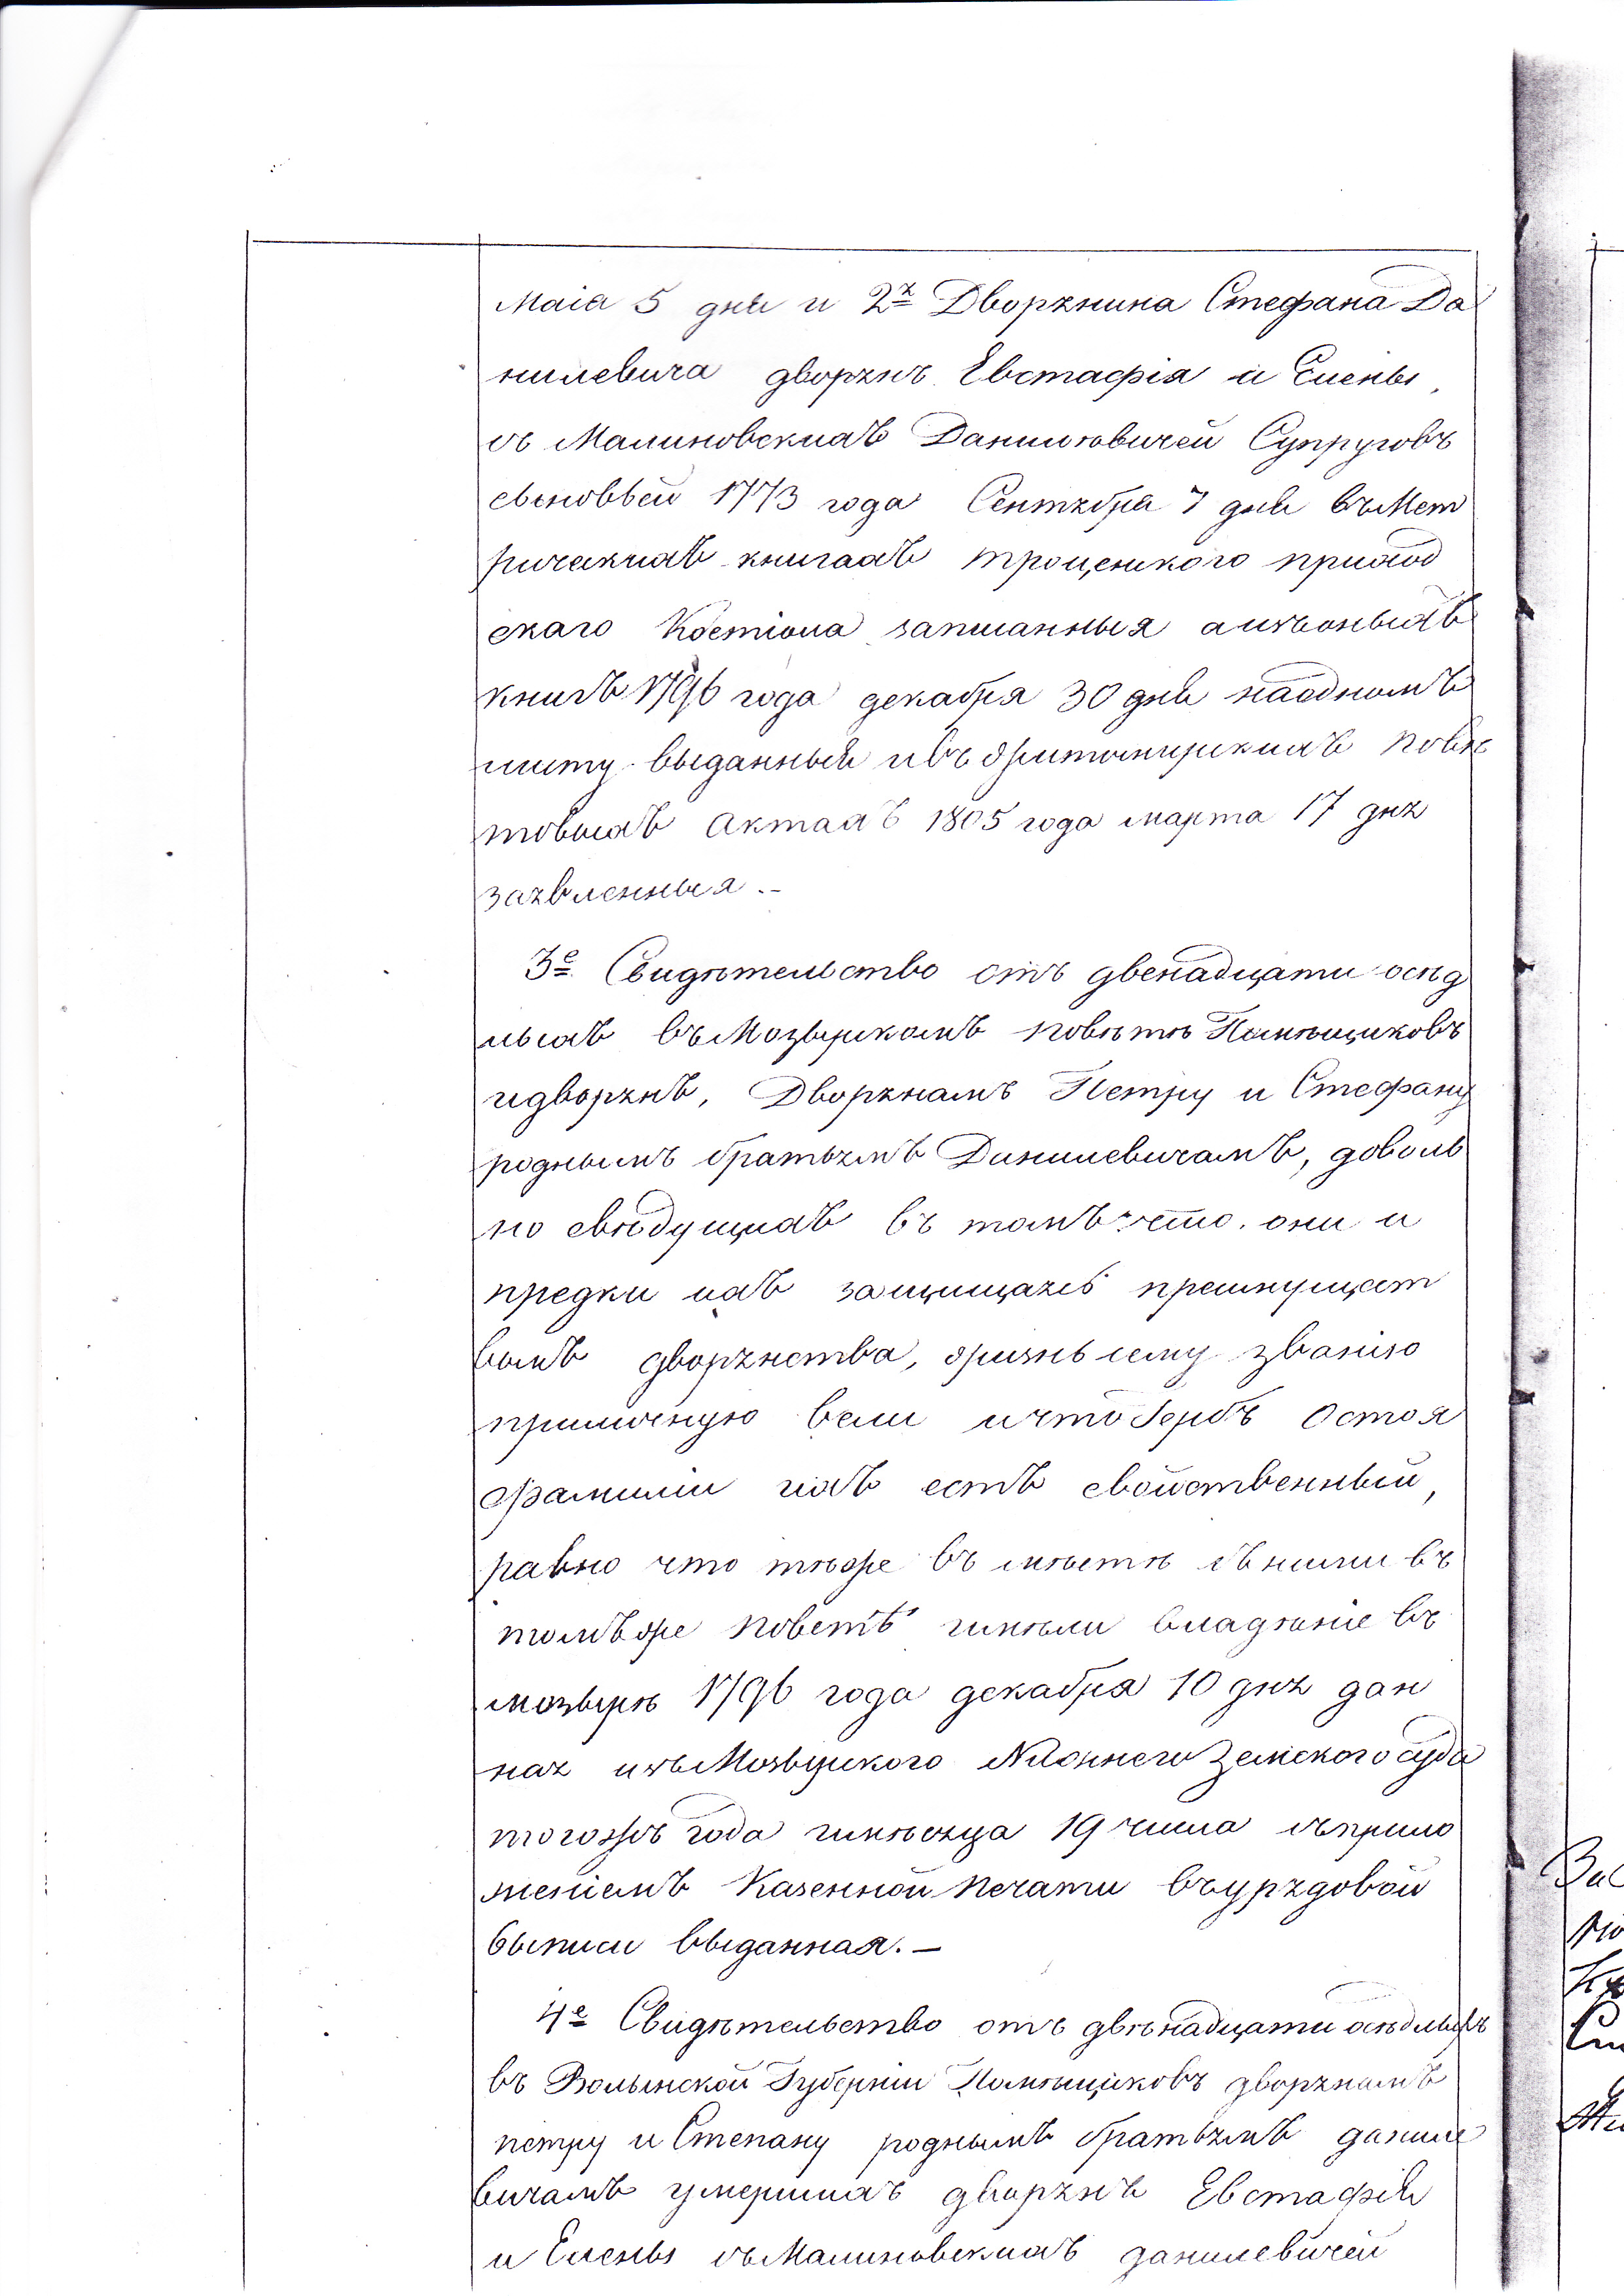 Маіа 5 дня и 2я Дворянина Стефана Да
нилевича дворянъ Евстафія и Елены
съ Малиновскихъ Данилювичей Супруговъ
сыновьей 1773 года Сентября 7 дня въ Мет
рическихъ книгахъ Троценкого приход
скаго Костіола записанныя а изъ оныхъ
книгъ 1796 года декабря 30 дня на одномъ
листу выданныя и въ Житомирскихъ Повѣ
товыхъ Актахъ 1805 года марта 17 дня
заявленныя.-
3е Свидѣтельство отъ двенадцати осѣд
лыхъ въ Мозырскомъ повѣтѣ Помѣщиковъ
и дворянъ, Дворянамъ Петру и Стефану
роднымъ братьямъ Данилевичамъ, доволь
но свѣдущихъ въ томъ: что они и
предки ихъ защищаясь преимущест
вомъ дворянства, жизнь сему званію
приличную вели и что Гербъ Остоя
фамиліи ихъ естъ свойственный,
равно что тѣже въ мѣстѣ съ ними въ
томъ же Поветѣ имѣли владѣніе въ
мозырѣ 1796 года декабря 10 дня дан
ная изъ Мозырского Нижнего Земского суда
того жъ года и мѣсяца 19 числа съ прило
женіемъ Казенной Печати въ урядовой
выписи выданная.-
4е Свидѣтельство отъ двѣнадцати осѣдлыхъ
въ Волынской Губерніи Помѣщиковъ дворянамъ
петру и Степану роднымъ братьямъ даниле
вичамъ умершихъ дворянъ Евстафія
и Елены съ Малиновскихъ данилевичей
За
Ст